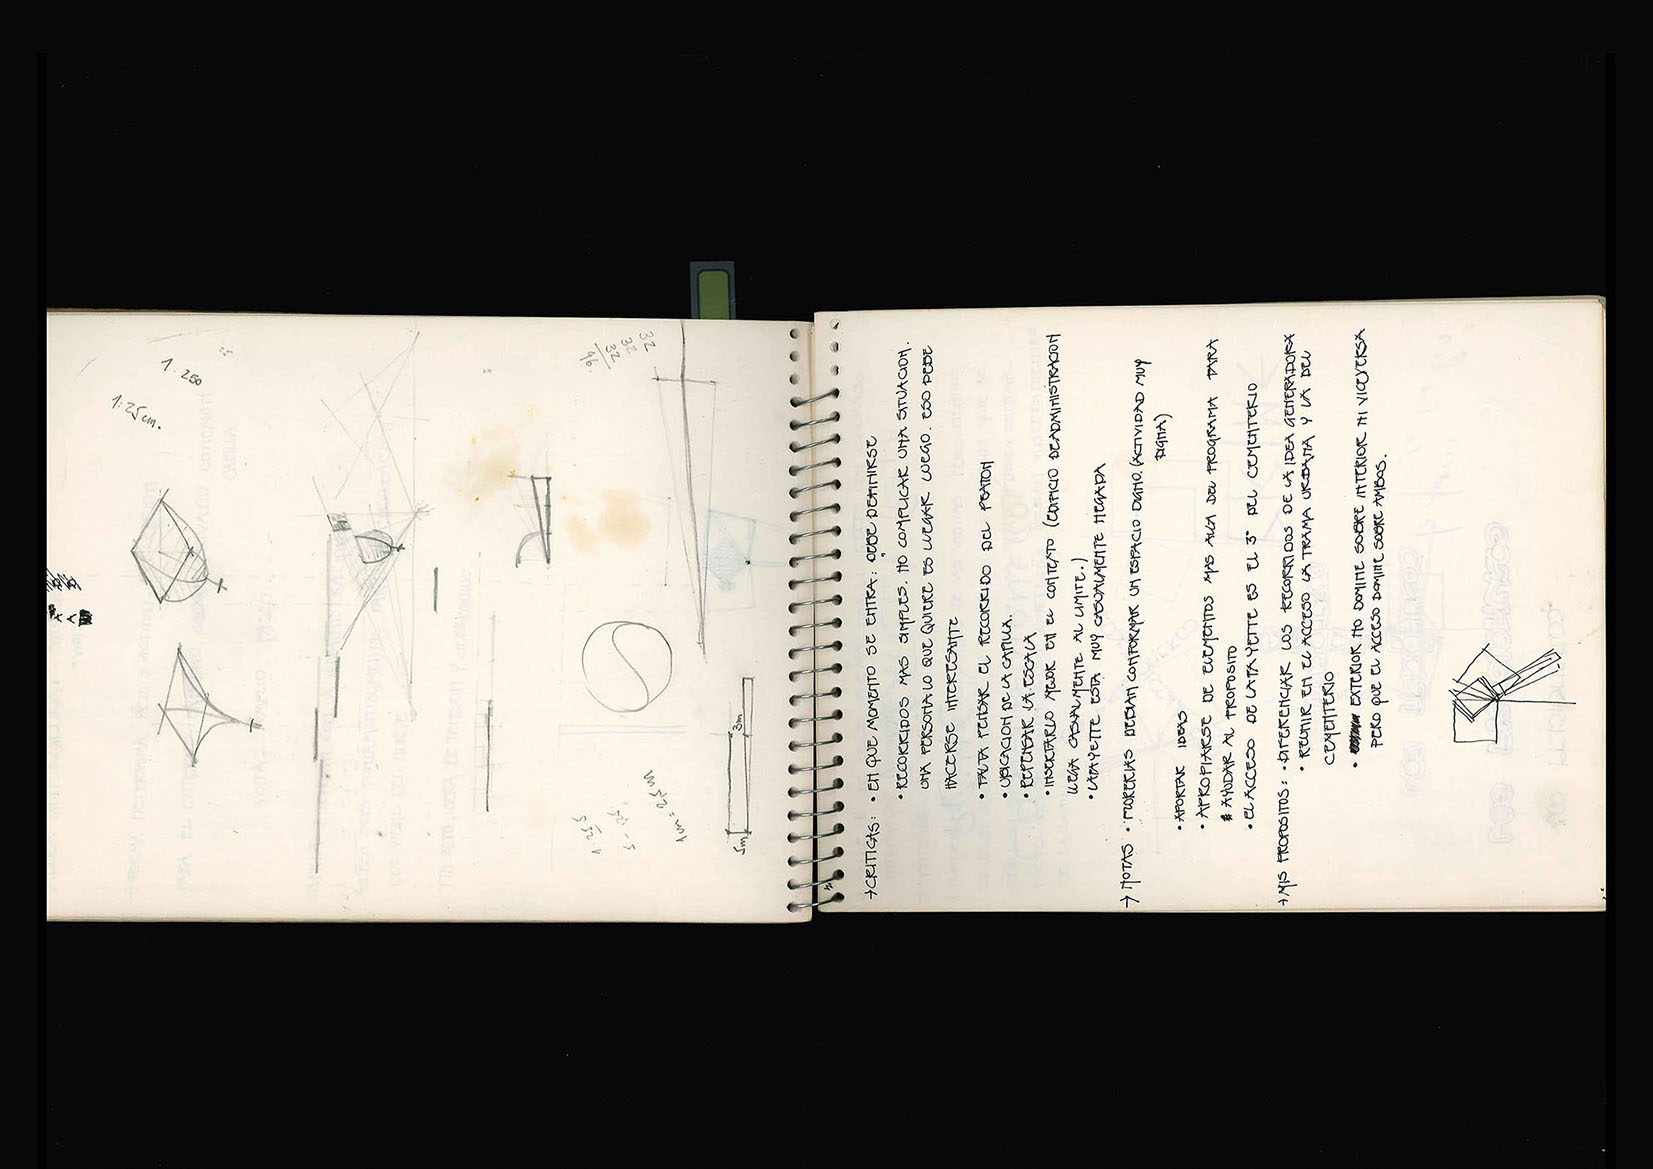 1:250
1:25cm.
A
A
32
32
32
96
3m
5m
1cm = 2,5m
→ CRITICAS: • EN QUE MOMENTO SE ENTRA: DEBE DEFINIRSE
• RECORRIDOS MAS SIMPLES. NO COMPLICAR UNA SITUACION.
UNA PERSONA LO QUE QUIERE ES LLEGAR LUEGO. ESO DEBE
HACERSE INTERESANTE
• FALTA PENSAR EL RECORRIDO DEL PEATON
• UBICACION DE LA CAPILLA.
• REPENSAR LA ESCALA
• INSERTARLO MEJOR EN EL CONTEXTO (EDIFICIO DE ADMINISTRACION
LLEGA CASUALMENTE AL LIMITE.)
• LAFAYETTE ESTA MUY CASUALMENTE NEGADA
→ NOTAS • FLORERIAS DEBIAN CONFORMAR UN ESPACIO DIGNO. (ACTIVIDAD MUY
DIGNA)
• APORTAR IDEAS
• APROPIARSE DE ELEMENTOS MAS ALLA DEL PROGRAMA PARA
AYUDAR AL PROPOSITO
• EL ACCESO DE LAFAYETTE ES EL 3° DEL CEMENTERIO
→ MIS PROPOSITOS: • DIFERENCIAR LOS RECORRIDOS DE LA IDEA GENERADORA
• REUNIR EN EL ACCESO LA TRAMA URBANA Y LA DEL
CEMENTERIO
• EXTERIOR NO DOMINE SOBRE INTERIOR NI VICEVERSA
PERO QUE EL ACCESO DOMINE SOBRE AMBOS.